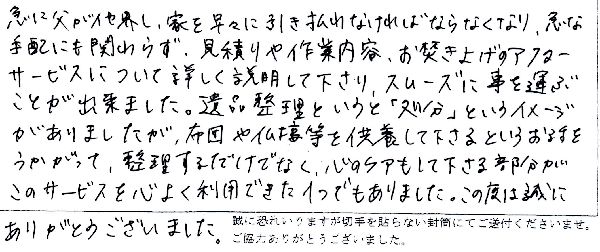 急に父が他界し、家を早々に引き払わなければならなくなり、急な
手配にも関わらず、見積りや作業内容、お焚き上げのアフター
サービスについて詳しく説明して下さり、スムーズに事を運ぶ
ことが出来ました。遺品整理というと「処分」というイメージ
がありましたが、布団や仏壇等を供養して下さるというお話を
うかがって、整理するだけでなく、心のケアもして下さる部分が
このサービスを心よく利用できた1つでもありました。この度は誠に
ありがとうございました。
誠に恐れいりますが切手を貼らない封筒にてご送付くださいませ。
ご協力ありがとうございました。